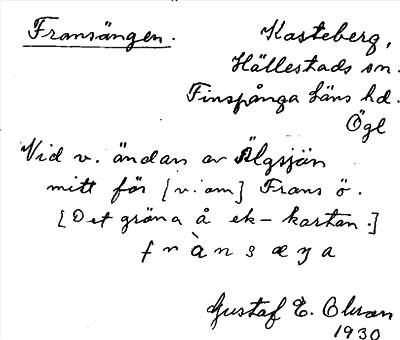 Fransängen.
Kasteberg,
Hällestads sn.
Finspånga läns hd.
Ögl
Vid v. ändan av Älgsjön
mitt för [v. om] Frans ö.
[Det gröna å ek-kartan.]
Gustaf E. Olsson
1930